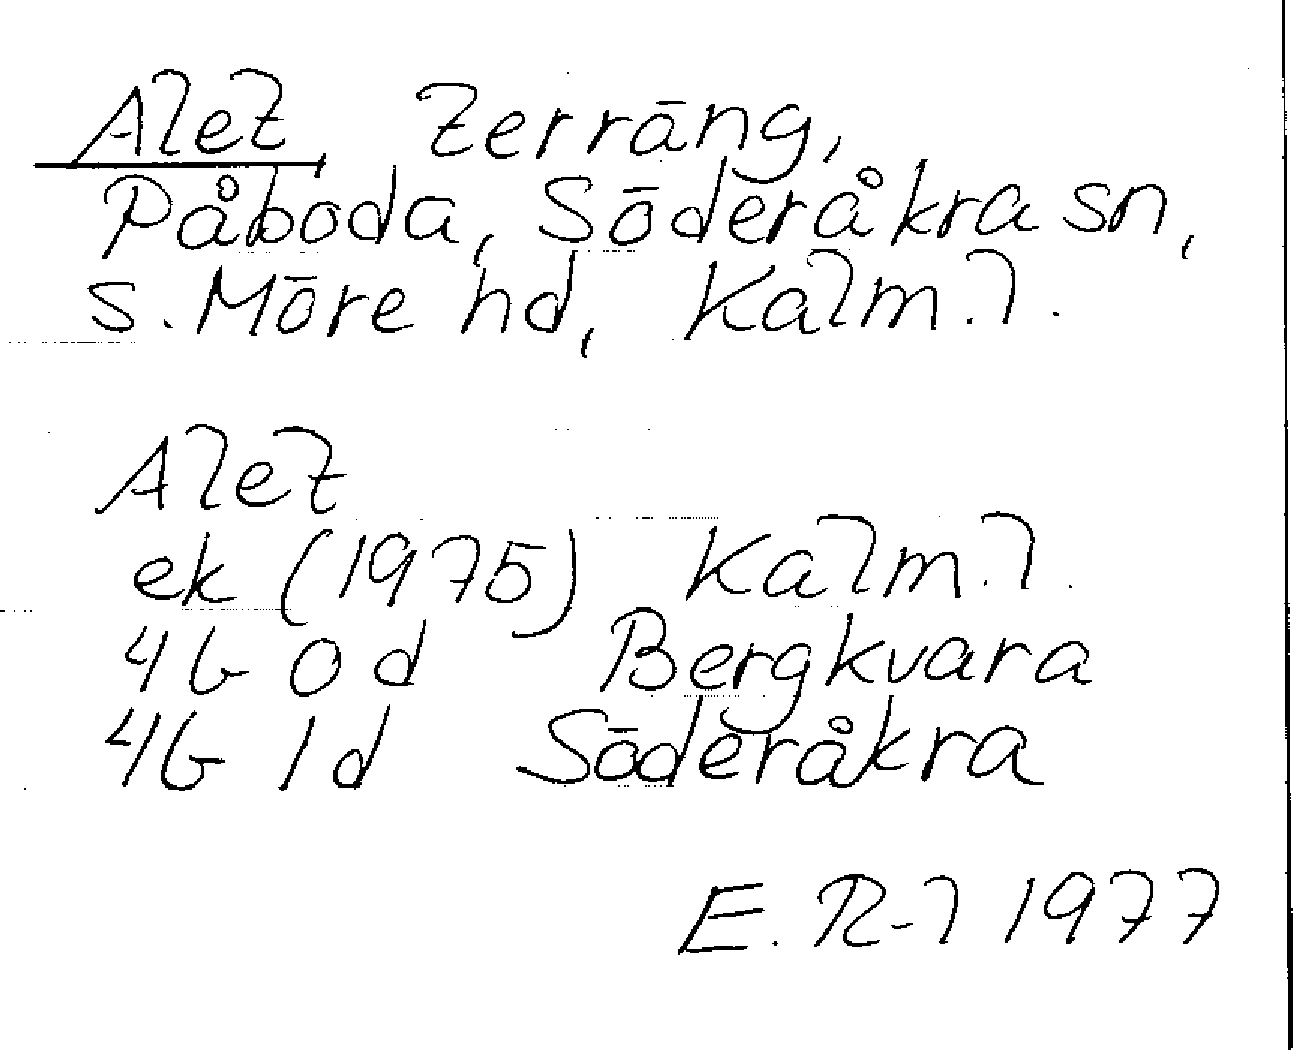 Alet, terräng,
Påboda, Söderåkra sn,
S. Möre hd, Kalm. l.
Alet
ek (1975) Kalm. l.
4G 0d Bergkvara
4G 1d Söderåkra
E. R-l 1977